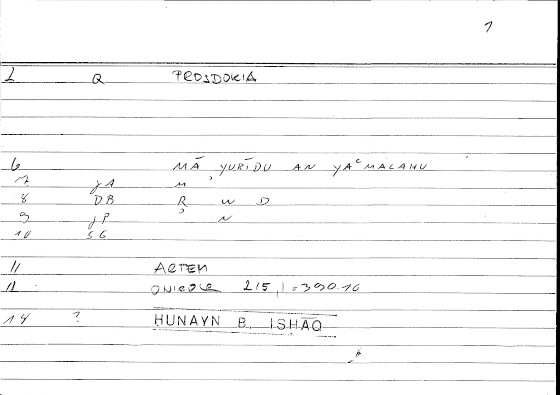 1
2 Q PROSDOKIA
6 MĀ YURĪDU AN YAʿMALAHU
7 JA M
8 DB R W D
9 JP ʾ N
10 SG
11 ARTEM
12 ONIROCR 215,1=390.10
14 ? HUNAYN B. ISHĀQ